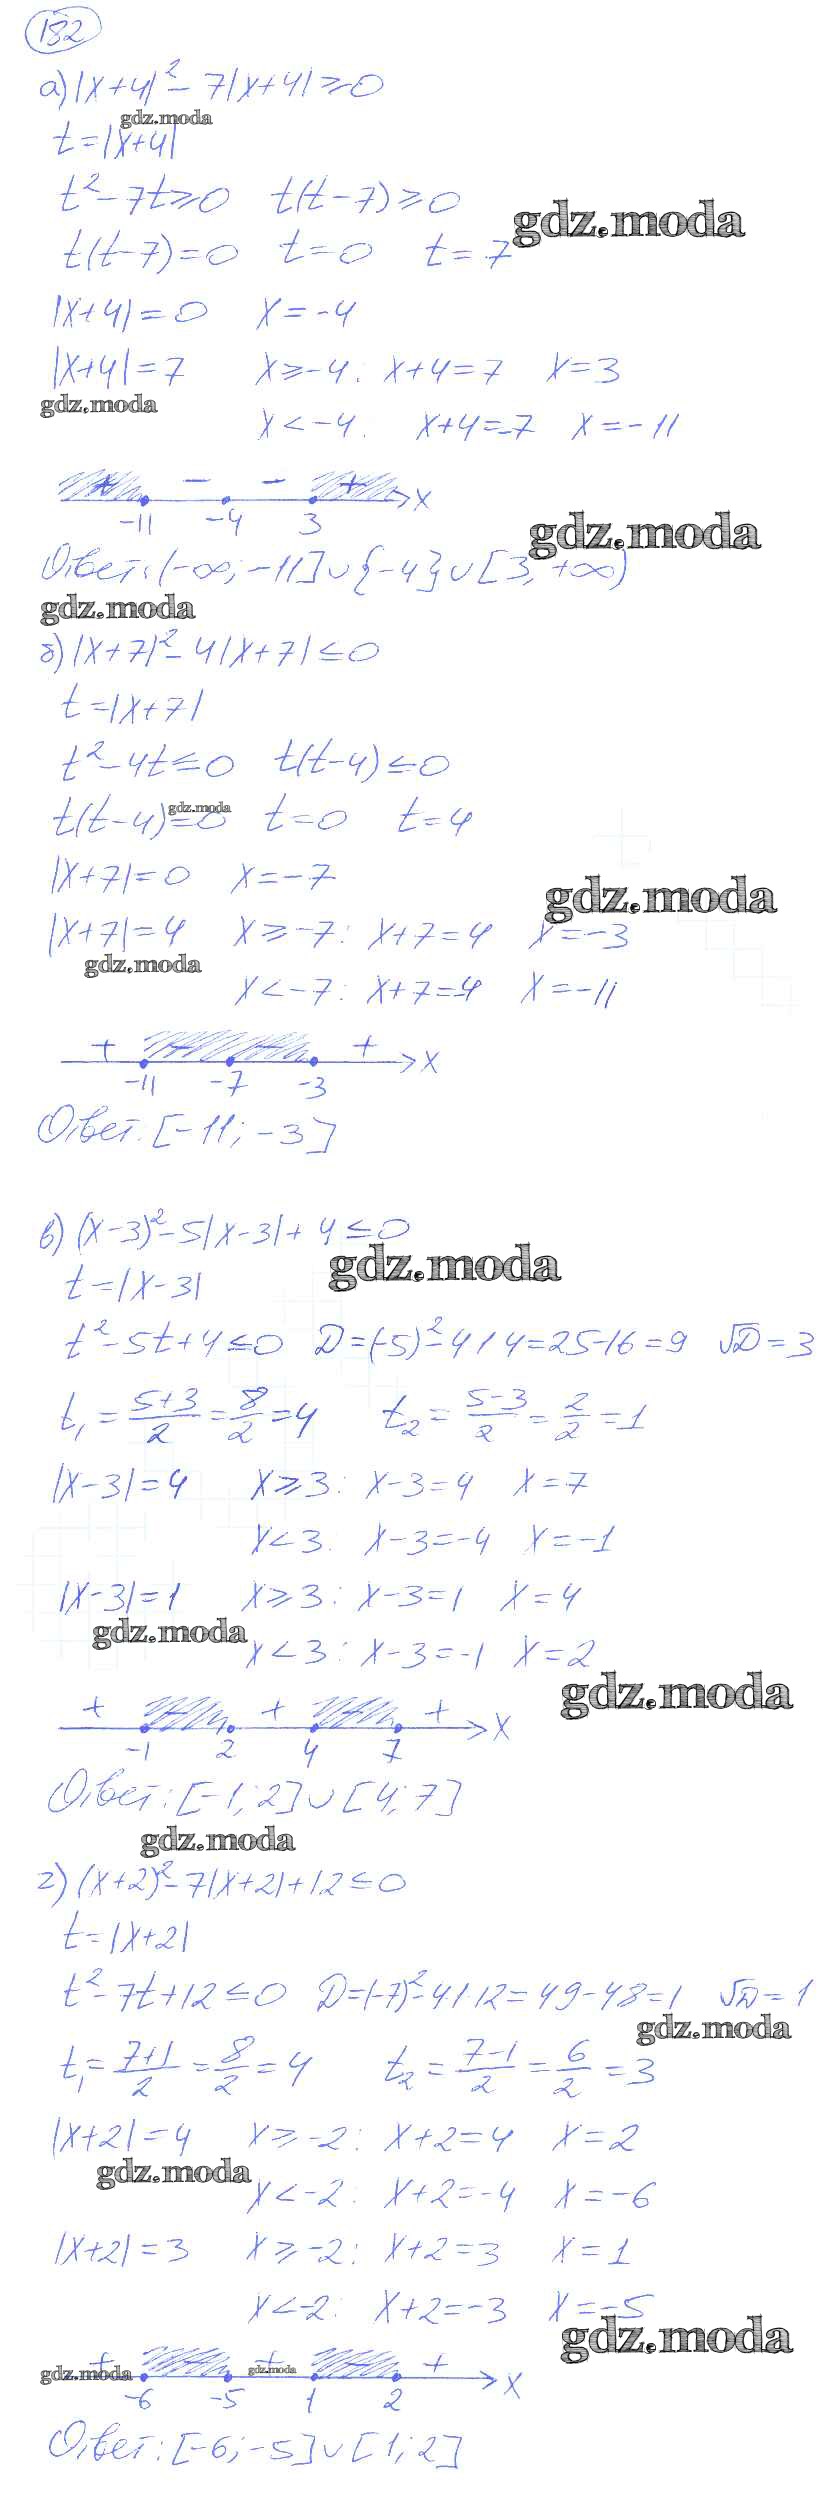 182
а) |x+4|² - 7|x+4| ≥ 0
gdz.moda
t = |x+4|
t² - 7t ≥ 0 t(t-7) ≥ 0
gdz.moda
t(t-7) = 0 t = 0 t = 7
|x+4| = 0 x = -4
|x+4| = 7 x ≥ -4: x+4 = 7 x = 3
gdz.moda
x < -4: x+4 = -7 x = -11
+ - - + x
-11 -4 3
gdz.moda
Ответ: (-∞; -11] ∪ {-4} ∪ [3; +∞)
gdz.moda
б) |x+7|² - 4|x+7| ≤ 0
t = |x+7|
t² - 4t ≤ 0 t(t-4) ≤ 0
gdz.moda
t(t-4) = 0 t = 0 t = 4
|x+7| = 0 x = -7
gdz.moda
|x+7| = 4 x ≥ -7: x+7 = 4 x = -3
gdz.moda
x < -7: x+7 = -4 x = -11
+ - - + x
-11 -7 -3
Ответ: [-11; -3]
в) (x-3)² - 5|x-3| + 4 ≤ 0
gdz.moda
t = |x-3|
t² - 5t + 4 ≤ 0 D = (-5)² - 4·1·4 = 25-16 = 9 √D = 3
t₁ = (5+3)/2 = 8/2 = 4 t₂ = (5-3)/2 = 2/2 = 1
|x-3| = 4 x ≥ 3: x-3 = 4 x = 7
x < 3: x-3 = -4 x = -1
|x-3| = 1 x ≥ 3: x-3 = 1 x = 4
gdz.moda
x < 3: x-3 = -1 x = 2
gdz.moda
+ - + - + x
-1 2 4 7
Ответ: [-1; 2] ∪ [4; 7]
gdz.moda
г) (x+2)² - 7|x+2| + 12 ≤ 0
t = |x+2|
t² - 7t + 12 ≤ 0 D = (-7)² - 4·1·12 = 49-48 = 1 √D = 1
gdz.moda
t₁ = (7+1)/2 = 8/2 = 4 t₂ = (7-1)/2 = 6/2 = 3
|x+2| = 4 x ≥ -2: x+2 = 4 x = 2
gdz.moda
x < -2: x+2 = -4 x = -6
|x+2| = 3 x ≥ -2: x+2 = 3 x = 1
x < -2: x+2 = -3 x = -5
gdz.moda
+ - + - + x
gdz.moda gdz.moda
-6 -5 1 2
Ответ: [-6; -5] ∪ [1; 2]